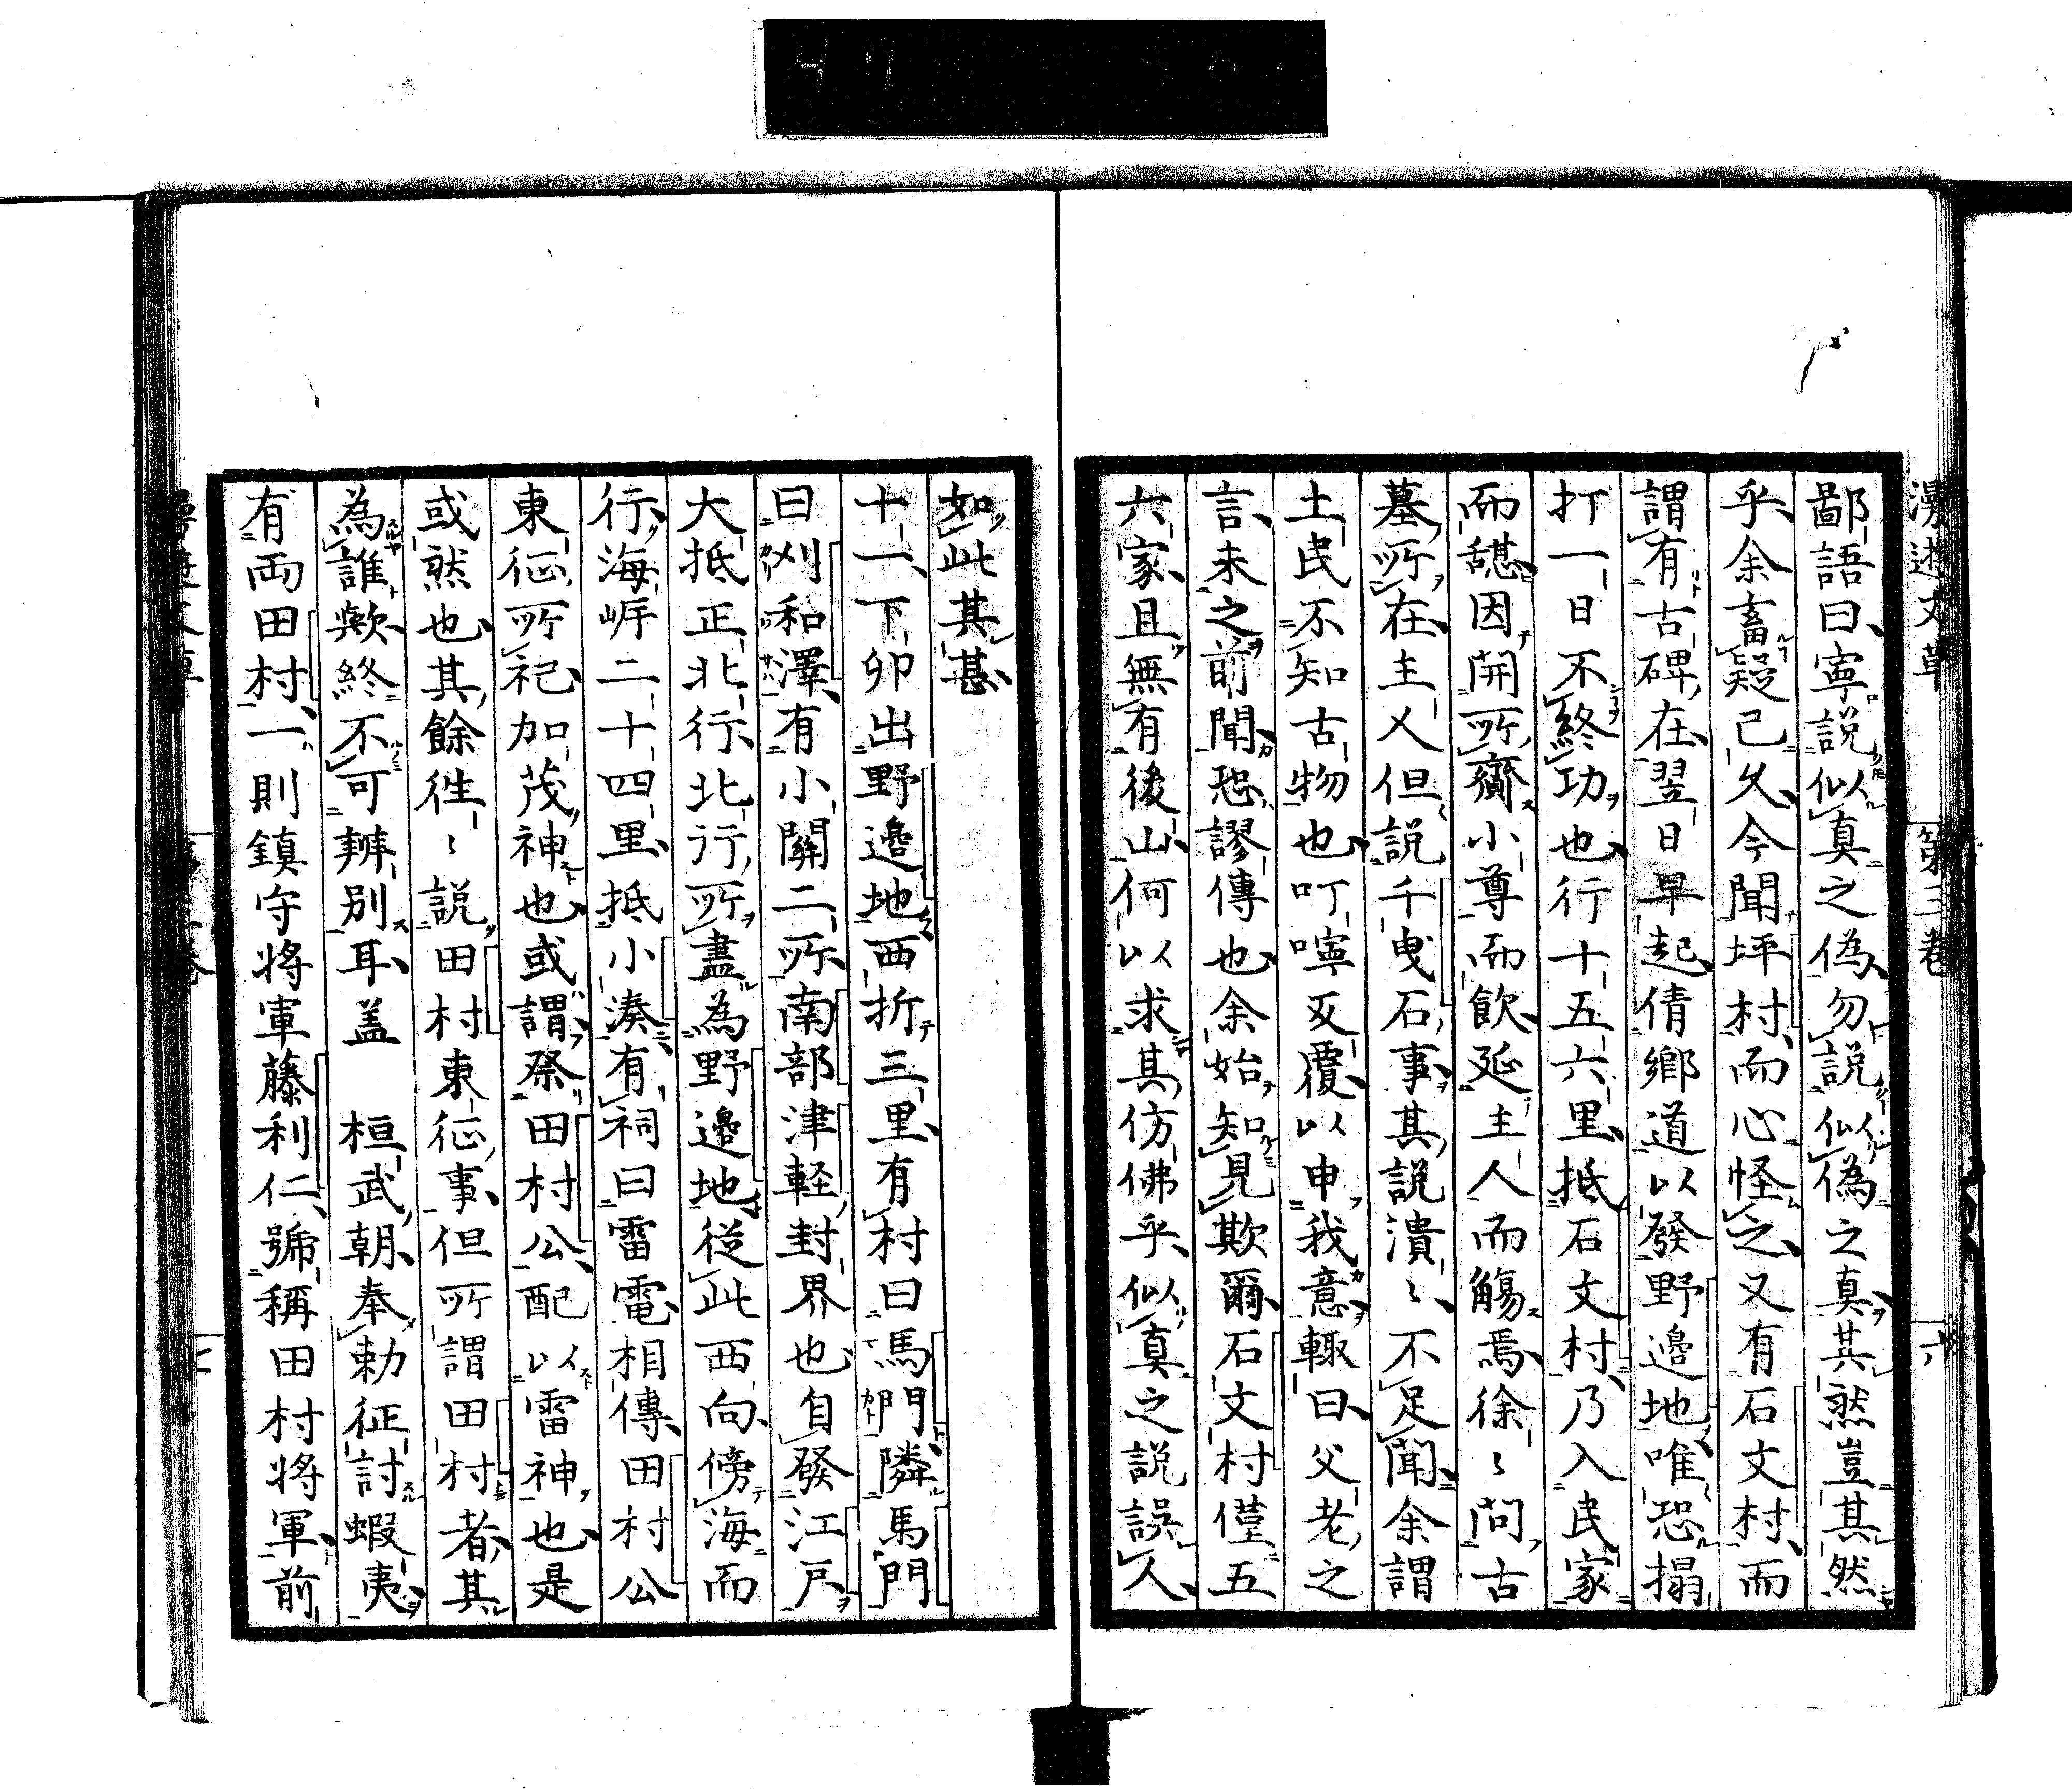 漫遊文草 第三卷 六
鄙語曰寧說似真之偽勿說似偽之真其然豈其然
乎余畜疑已久今聞坪村而心怪之又有石文村而
謂有古碑在翌日早起倩鄉道以發野邊地唯恐搨
打一日不終功也行十五六里抵石文村乃入民家
而憇因開所齎小尊而飲延主人而觴焉徐〻問古
墓所在主人但說千曳石事其說潰〻不足聞余謂
土民不知古物也叮嚀反覆以申我意輙曰父老之
言未之前聞恐謬傳也余始知見欺爾石文村僅五
六家且無有後山何以求其仿佛乎似真之說誤人
如此其甚
十一下卯出野邊地西折三里有村曰馬門隣馬門
曰刈和澤有小關二所南部津軽封界也自發江戶
大抵正北行北行所盡為野邊地從此西向傍海而
行海岸二十四里抵小湊有祠曰雷電相傳田村公
東征所祀加茂神也或謂祭田村公配以雷神也是
或然也其餘徃〻說田村東征事但所謂田村者其
為誰歟終不可辨別耳盖 桓武朝奉勅征討蝦夷
有両田村一則鎮守将軍藤利仁號稱田村将軍前